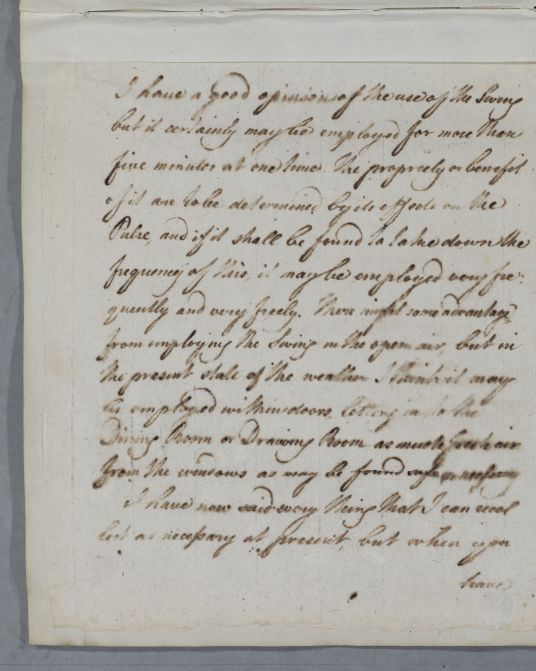 I have a good opinion of the use of the Swing
but it certainly may be employed for more than
five minutes at one time. The propriety or benefit
of it are to be determined by its effects on the
Pulse, and if it shall be found to take down the
frequency of this, it may be employed very fre:
quently and very freely. There might some advantage
from employing the Swing in the open air, but in
the present state of the weather I think it may
be employed within doors, letting in to the
Dining Room or Drawing Room as much fresh air
from the windows as may be found necessary
I have now said every thing that I can recol
lect as necessary at present, but when upon